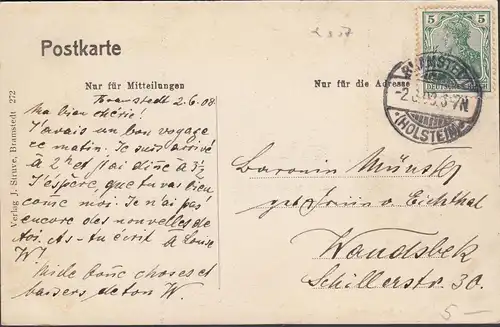 Postkarte
Nur für Mitteilungen
Nur für die Adresse
5 5
DEUTSCHES REICH
BRAMSTEDT
(HOLSTEIN)
Bramstedt 2.6.08.
Ma bien chérie!
J'avais un bon voyage
ce matin. Je suis arrivé
à 2 h et j'ai diné à 3½
J'espère, que tu vas bien
comme moi. Je n'ai pas
encore des nouvelles de
toi. As-tu écrit à
W?
Mille bonne choses et
baisers de ton W.
Baronin
geb.
Wandsbek
Schillerstr 30.
5 —
Verlag J. Struve, Bramstedt 272